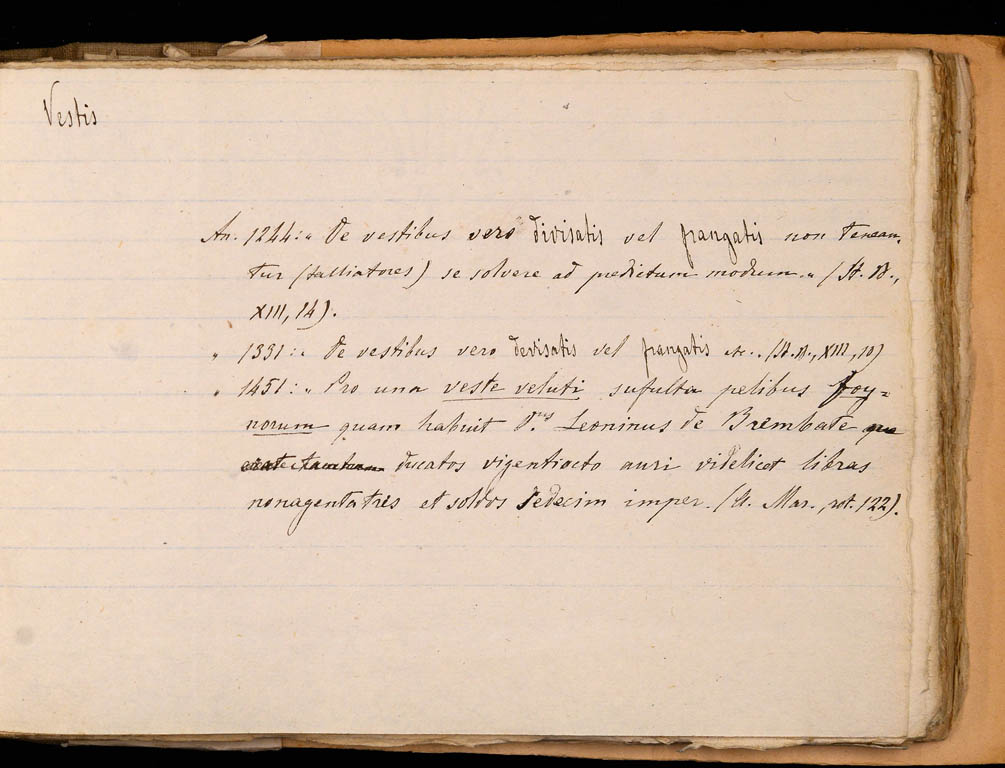 Vestis
An. 1244: „ De vestibus vero divisatis vel frangatis non tenean-
tur (talliatores) se solvere ad predictum modum. „ (St. B.,
XIII, 14).
„ 1331: „ De vestibus vero devisatis vel frangatis etc. „ (St. B., XIII, 10)
„ 1451: „ Pro una veste veluti sufulta pelibus foy=
norum quam habuit D.nus Leoninus de Brembate
ducatos vigentiocto auri videlicet libras
nonagentatres et soldos sedecim imper. (St. Mar., rot. 122).